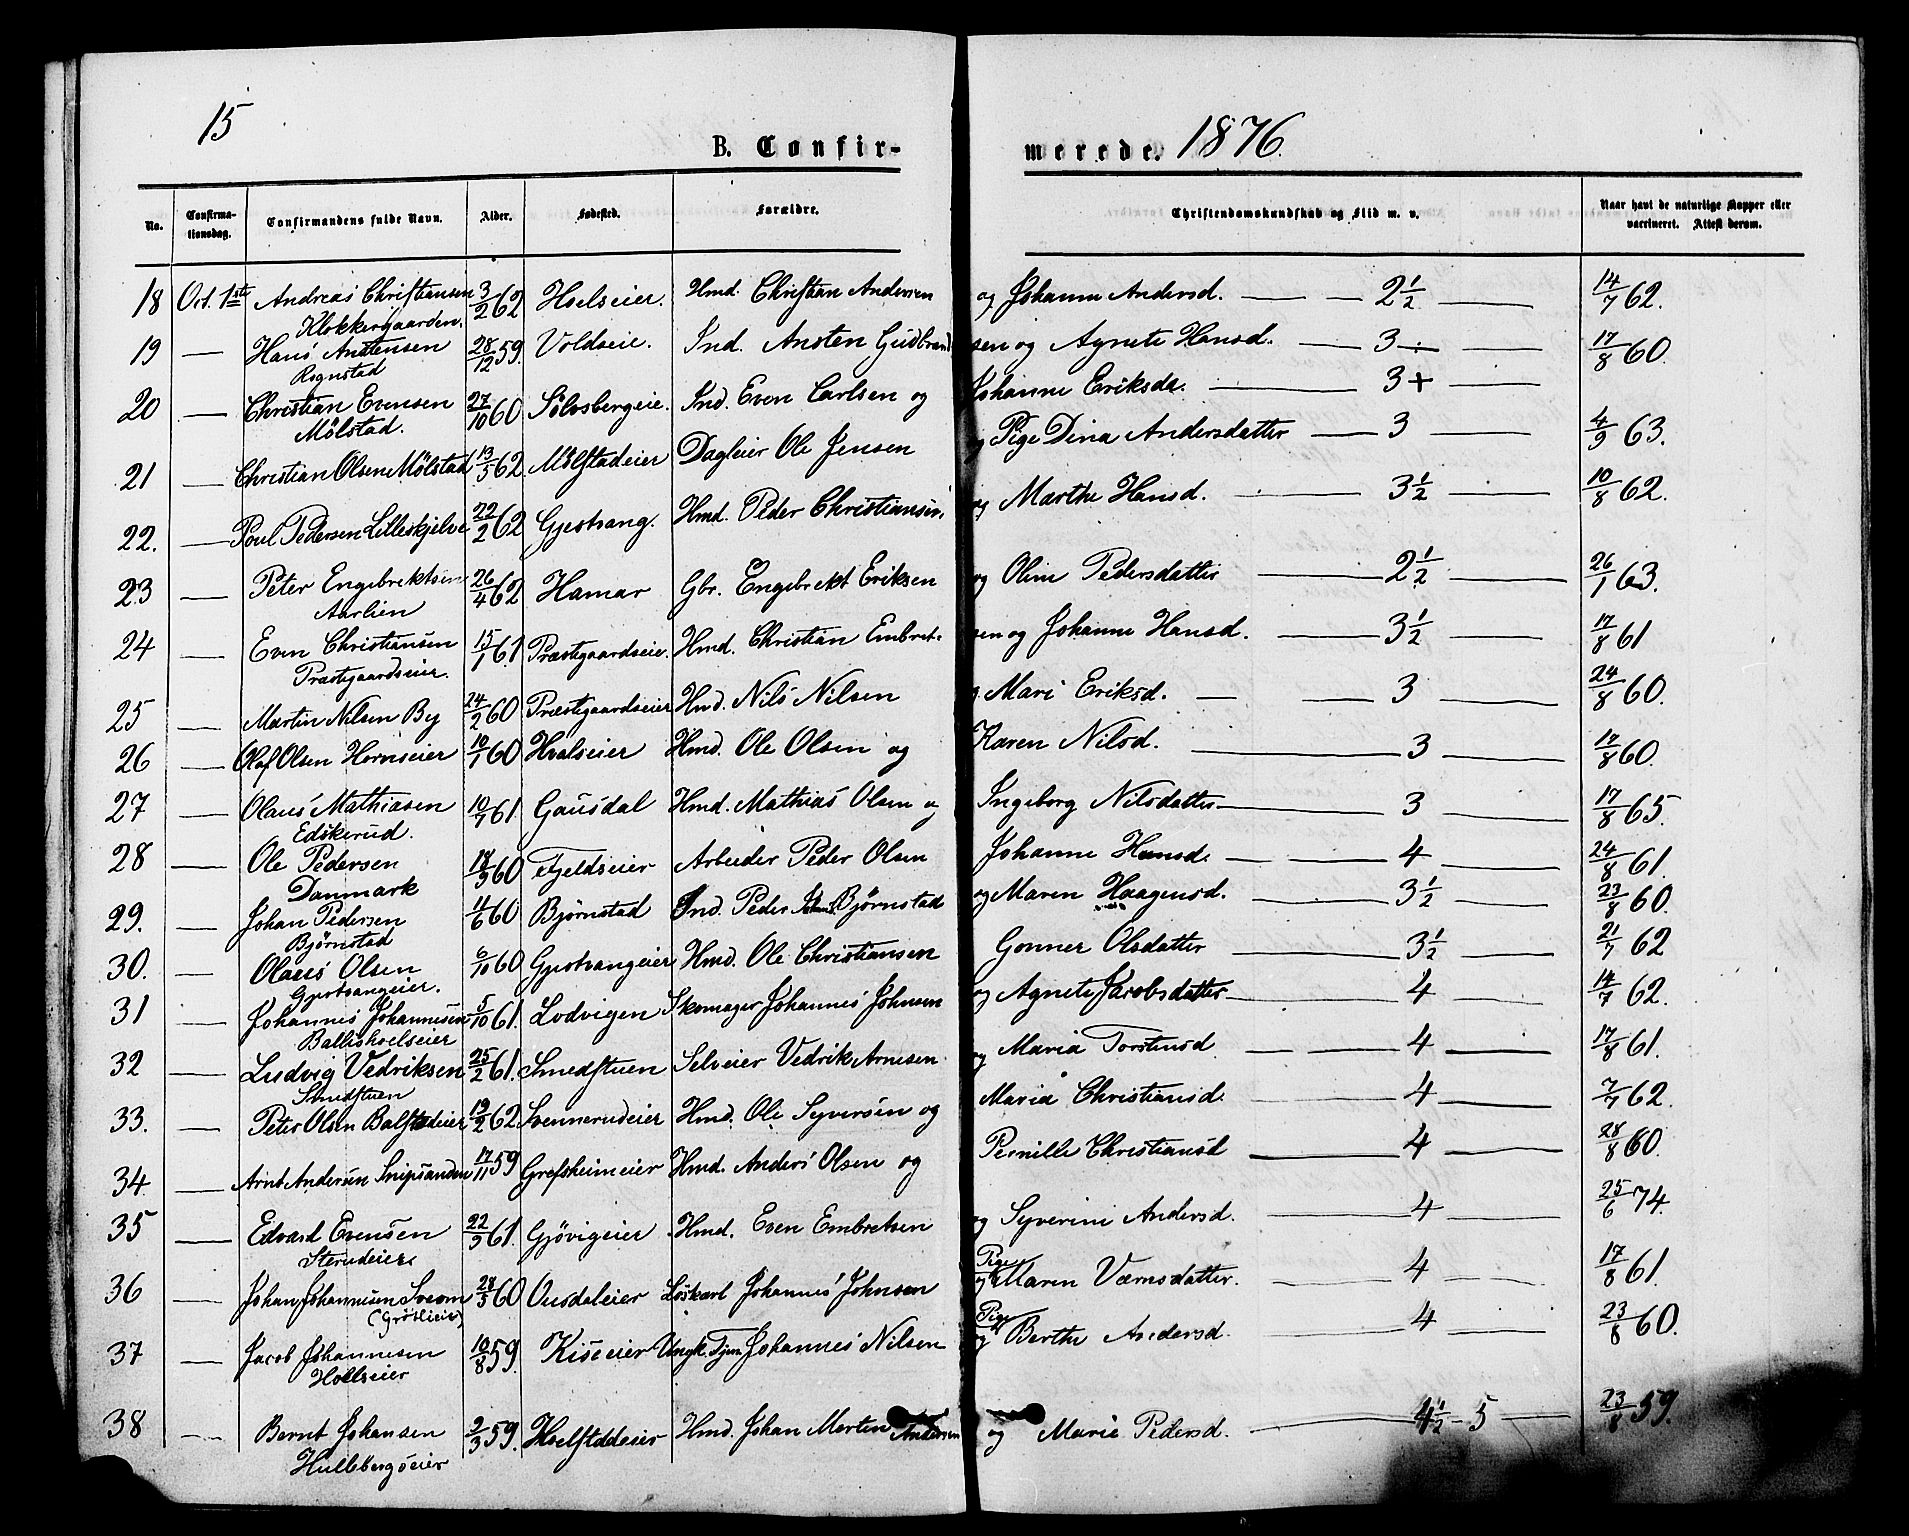 15
B. Confir-
merede. 1876.
No.
Confirma-
tionsdag.
Confirmandens fulde Navn.
Alder.
Fødested.
Forældre.
Christendomskundskab og Flid m. v.
Naar havt de naturlige Kopper eller
vaccineret. Attest derom.
18 Oct. 1ste Andreas Christiansen 3/2 62 Hoelseier. Hmd. Christian Andersen og Johanne Andersd. — — 2 1/2 — 14/7 62.
Klokkergaarden.
19 — Hans Anstensen 28/12 59. Voldseie. Ind. Ansten Gudbrandsen og Agnete Hansd. — 3 ÷ — 17/8 60.
Rognstad
20 — Christian Evensen 27/10 60 Sølvsbergeie. Ind. Even Carlsen og Johanne Eriksda. — 3+ —
Mølstad.
21 — Christian Olsen Mølstad 13/5 62 Mølstadeier Dagleier Ole Jensen og Pige Dina Andersdatter — 3 — 4/9 63.
22. — Poul Pedersen Lilleskjelve 22/2 62 Gjestvang. Hmd. Peder Christiansen og Marthe Hansd. — 3 1/2 — 10/8 62.
23 — Peter Engebrektsen 26/4 62 Hamar Gbr. Engebrekt Eriksen og Oline Pedersdatter — 2 1/2 — 26/1 63.
Aarlien
24 — Even Christiansen 15/1 61 Præstegaardseie. Hmd. Christian Embretsen og Johanne Hansd. — 3 1/2 — 17/8 61
Præstegaardseier.
25 — Martin Nilsen By 24/2 60 Præstegaardseier Hmd. Nils Nilsen og Mari Eriksd. — 3 — 24/8 60.
26 — Olaf Olsen Hornseier 10/1 60 Hvalseier Hmd. Ole Olsen og Karen Nilsd. — 3 — 17/8 60.
27 — Olaus Mathiasen 10/7 61. Gausdal Hmd. Mathias Olsen og Ingeborg Nilsdatter — 3 — 17/8 65.
Edskerud.
28 — Ole Pedersen 18/9 60 Fjeldseier Arbeider Peder Olsen Johanne Hansd. — 4 — 24/8 61.
Danmark
29. — Johan Pedersen 11/6 60 Bjørnstad Ind. Peder Bjørnstad og Maren Haagensd. — 3 1/2 — 23/8 60.
Bjørnstad
30. — Olaus Olsen 6/10 60 Gjestvangeier Hmd. Ole Christiansen Gonner Olsdatter — 3 1/2 — 21/7 62
Gjestvangeier.
31 — Johannes Johannesen 5/10 61. Lodvigen Skomager Johannes Johnsen og Agnete Jacobsdatter — 4 — 14/7 62.
Ballishoelseier
32 — Ludvig Vedriksen 25/2 61. Smedstuen Selveier Vedrik Arnesen og Maria Torstensd — 4 — 17/8 61.
Smedstuen
33. — Peter Olsen Balstadeier 19/2 62 Svennerudeier Hmd. Ole Syversen og Maria Christiansd. — 4 — 7/7 62.
34. — Arnt Andersen Snipsanden 17/11 59 Grefsheimeier Hmd. Anders Olsen og Pernille Christiansd — 4 — 28/8 60.
35 — Edvard Evensen 22/5 61. Gjøvigeier Hmd. Even Embretsen og Syverine Andersd. — 4 — 25/6 74.
Sterudeier
36 — Johan Johannesen Sveom 28/5 60 Ousdaleier Løskarl Johannes Johnsen og Pige MarenVærnsdatter. — 4 — 17/8 61.
(Grøtlieie)
37 — Jacob Johannesen 10/8 59. Kiseeier Ungk. Tjen. Johannes Nilsen og Pige Berthe Andersd. — 4 — 23/8 60.
Hollseier
38 — Bernt Johansen 2/3 59. Hoelstadeier Hmd. Johan Martin Andersen og Marie Pedersd. — 4 1/2 - 5 — 23/8 59.
Hullebergseier